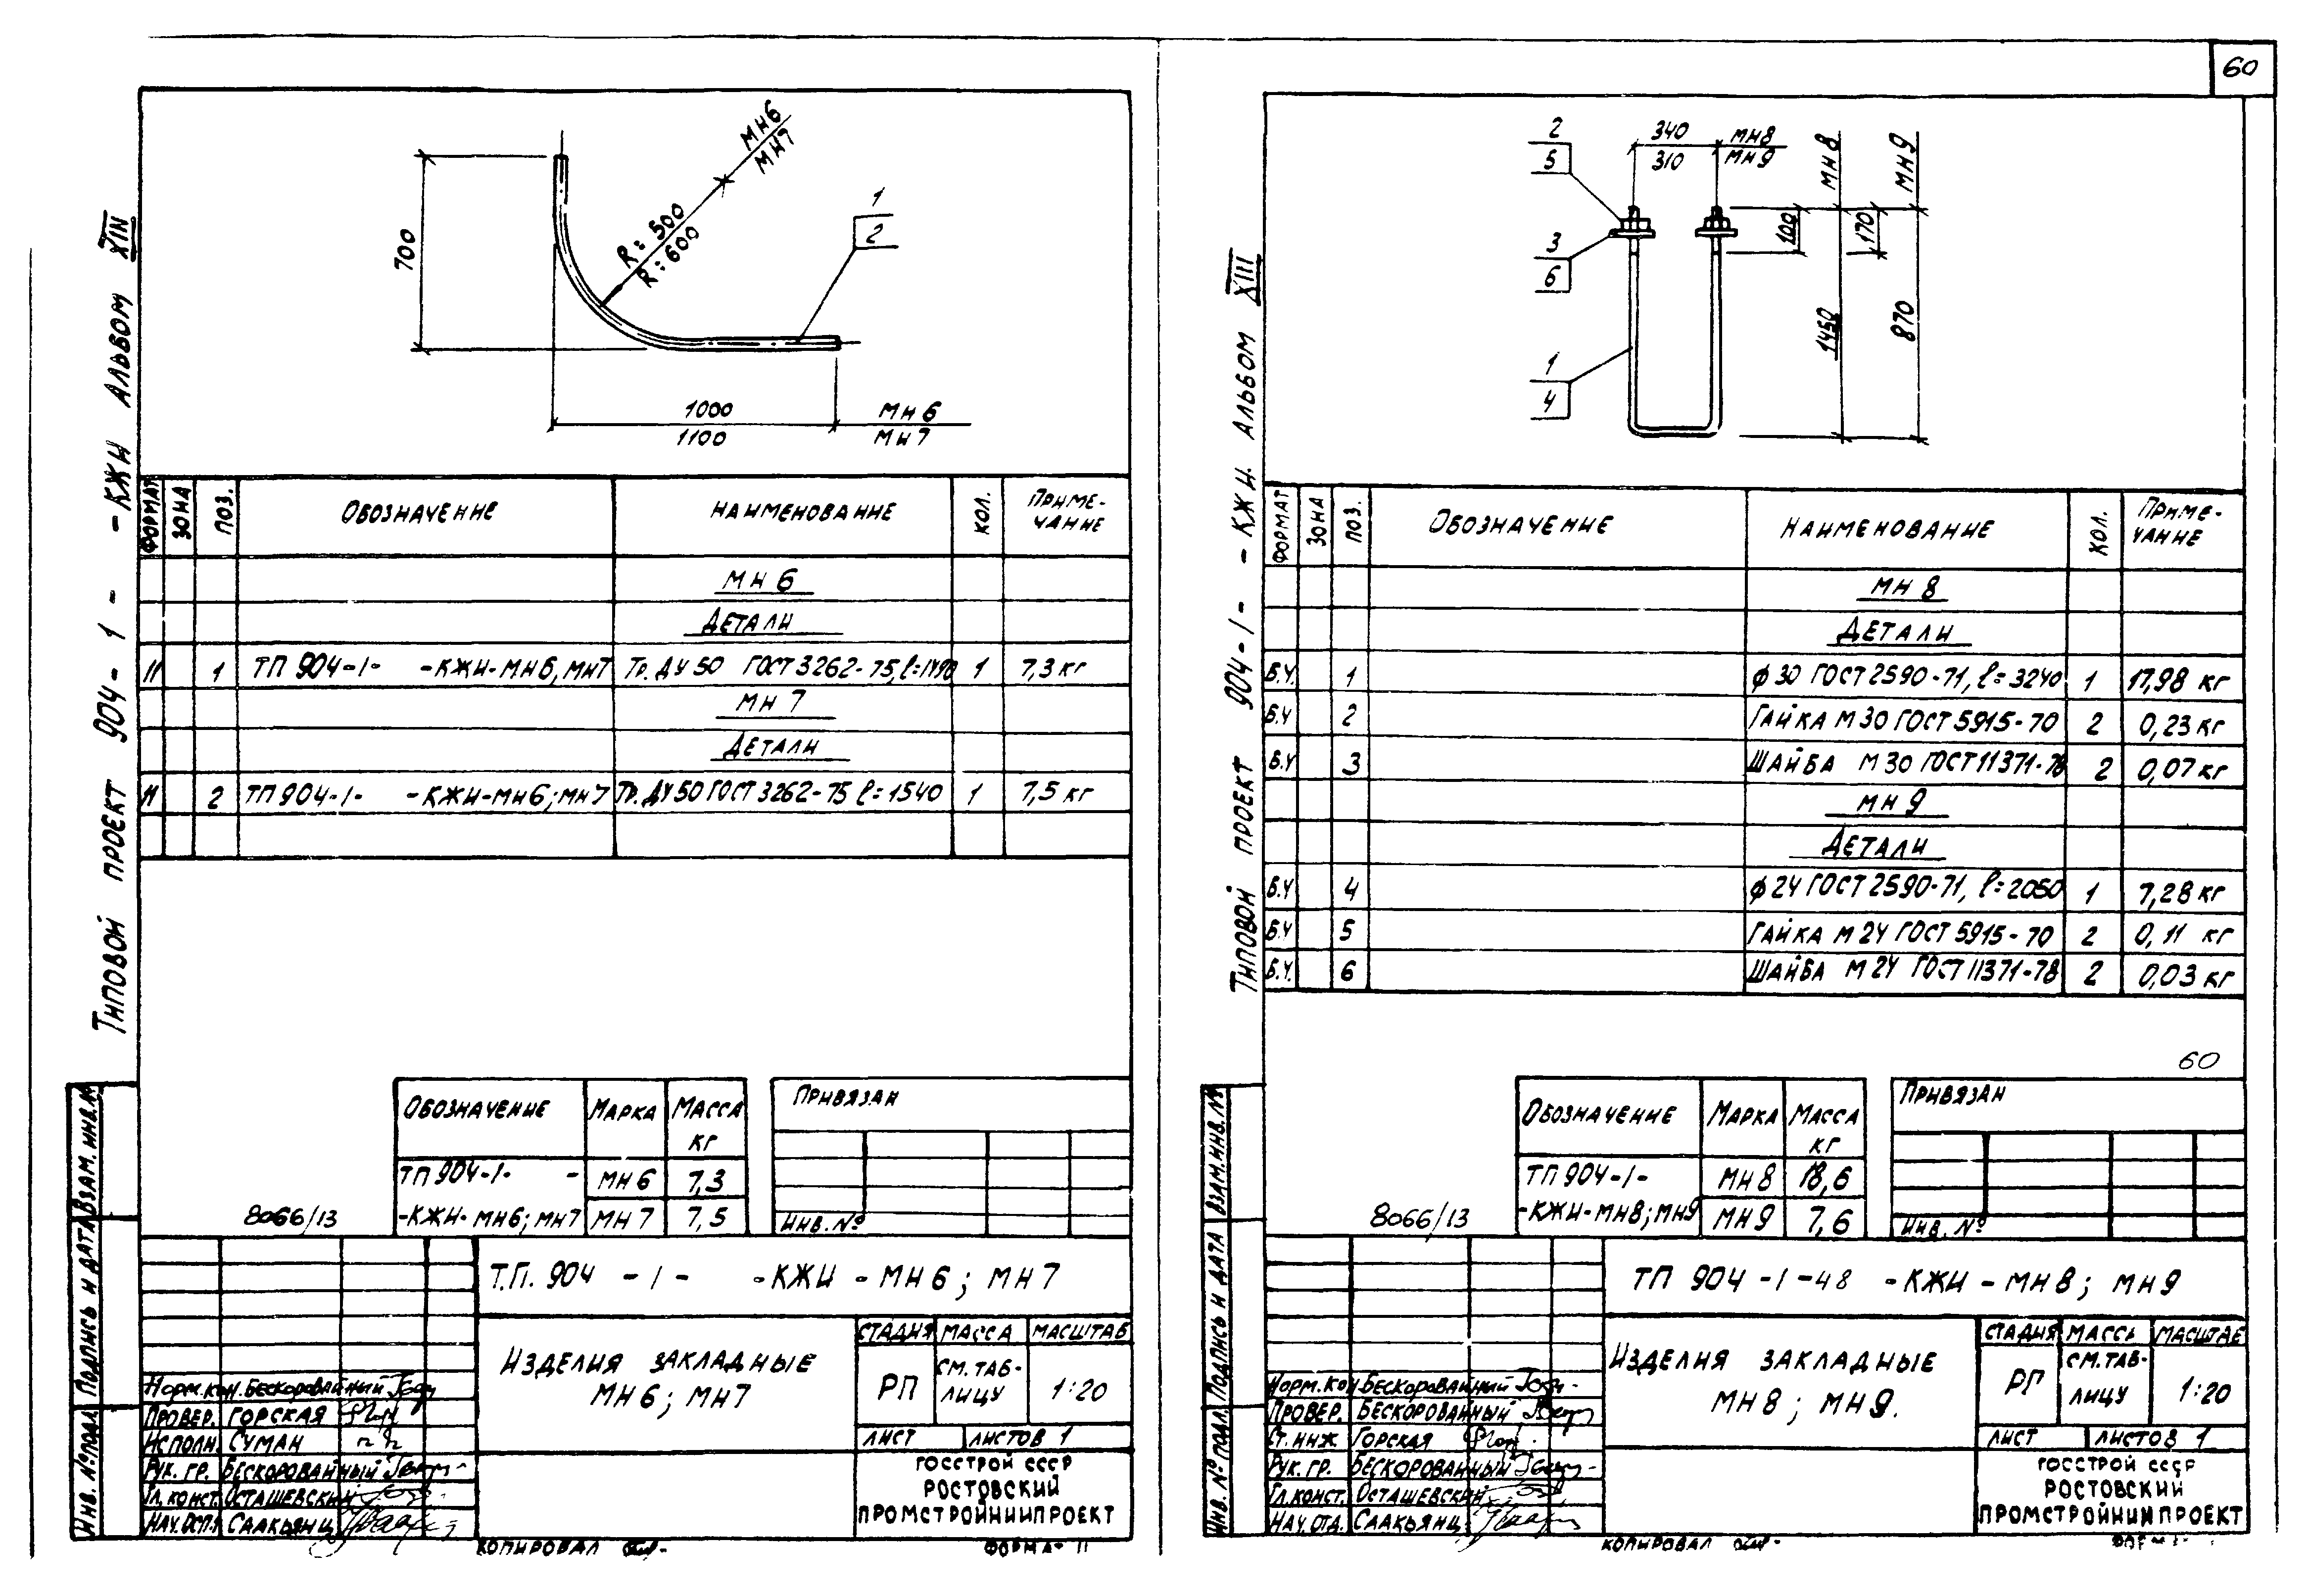 60
МН6
МН7
R=500
R=600
1
2
700
1000
1100
МН6
МН7
ФОРМАТ ЗОНА ПОЗ. ОБОЗНАЧЕНИЕ НАИМЕНОВАНИЕ КОЛ. ПРИМЕ-
ЧАНИЕ
МН 6
ДЕТАЛИ
11 1 ТП 904-1- -КЖИ-МН6, МН7 Тр. ДУ 50 ГОСТ 3262-75, ℓ=1490 1 7,3 кг
МН 7
ДЕТАЛИ
11 2 ТП 904-1- -КЖИ-МН6; МН7 Тр. ДУ 50 ГОСТ 3262-75 ℓ=1540 1 7,5 кг
ТИПОВОЙ ПРОЕКТ 904-1- -КЖИ АЛЬБОМ XIII
ОБОЗНАЧЕНИЕ МАРКА МАССА
КГ
ТП 904-1- - МН 6 7,3
-КЖИ-МН6; МН7 МН 7 7,5
ПРИВЯЗАН
ИНВ. №
8066/13
Т.П. 904 -1- -КЖИ - МН 6; МН 7
ИЗДЕЛИЯ ЗАКЛАДНЫЕ
МН 6; МН7
СТАДИЯ МАССА МАСШТАБ
РП СМ. ТАБ-
ЛИЦУ 1:20
ЛИСТ ЛИСТОВ 1
ГОССТРОЙ СССР
РОСТОВСКИЙ
ПРОМСТРОЙНИИПРОЕКТ
НОРМ.КОН. БЕСКОРОВАЙНЫЙ
ПРОВЕР. ГОРСКАЯ
ИСПОЛН. СУМАН
РУК. ГР. БЕСКОРОВАЙНЫЙ
ГЛ. КОНСТ. ОСТАШЕВСКИЙ
СААКЬЯНЦ
ИНВ. № ПОДЛ. ПОДПИСЬ И ДАТА ВЗАМ. ИНВ. №
КОПИРОВАЛ
ФОРМАТ 11
2
5
3
6
1
4
340
310
МН8
МН9
МН 8
МН 9
100
170
1450
870
ФОРМАТ ЗОНА ПОЗ. ОБОЗНАЧЕНИЕ НАИМЕНОВАНИЕ КОЛ. ПРИМЕ-
ЧАНИЕ
МН 8
ДЕТАЛИ
Б.Ч. 1 ф 30 ГОСТ 2590-71, ℓ=3240 1 17,98 кг
Б.Ч 2 ГАЙКА М 30 ГОСТ 5915-70 2 0,23 кг
Б.Ч 3 ШАЙБА М 30 ГОСТ 11371-78 2 0,07 кг
МН 9
ДЕТАЛИ
Б.Ч 4 ф 24 ГОСТ 2590-71, ℓ=2050 1 7,28 кг
Б.Ч 5 ГАЙКА М 24 ГОСТ 5915-70 2 0,11 кг
Б.Ч. 6 ШАЙБА М 24 ГОСТ 11371-78 2 0,03 кг
ТИПОВОЙ ПРОЕКТ 904-1- -КЖИ. АЛЬБОМ XIII
60
ОБОЗНАЧЕНИЕ МАРКА МАССА
КГ
ТП 904-1- МН 8 18,6
-КЖИ-МН8; МН9 МН 9 7,6
ПРИВЯЗАН
ИНВ. №
8066/13
ТП 904 -1-48 -КЖИ - МН 8; МН 9
ИЗДЕЛИЯ ЗАКЛАДНЫЕ
МН 8; МН 9.
СТАДИЯ МАССА МАСШТАБ
РП СМ. ТАБ-
ЛИЦУ 1:20
ЛИСТ ЛИСТОВ 1
ГОССТРОЙ СССР
РОСТОВСКИЙ
ПРОМСТРОЙНИИПРОЕКТ
НОРМ.КОН БЕСКОРОВАЙНЫЙ
ПРОВЕР. БЕСКОРОВАЙНЫЙ
СТ. ИНЖ ГОРСКАЯ
РУК. ГР. БЕСКОРОВАЙНЫЙ
ГЛ. КОНСТ. ОСТАШЕВСКИЙ
НАЧ. ОТД. СААКЬЯНЦ
ИНВ. № ПОДЛ. ПОДПИСЬ И ДАТА ВЗАМ. ИНВ. №
КОПИРОВАЛ